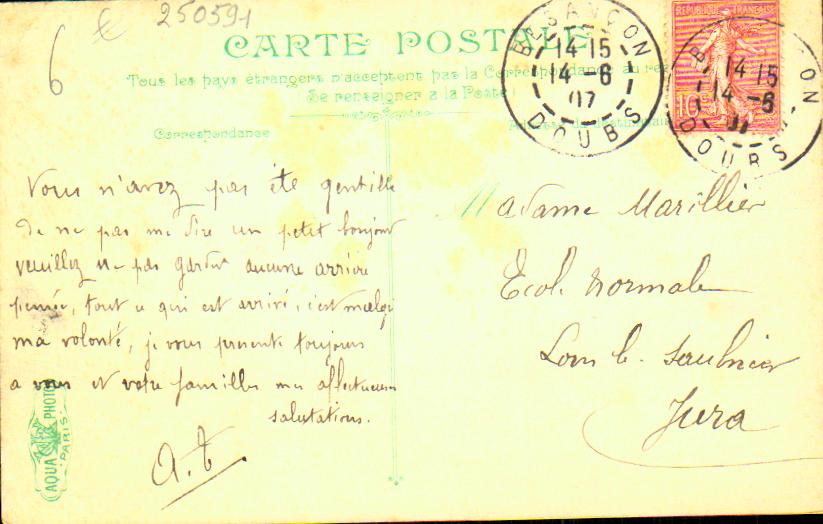 6 € 250591
CARTE POSTALE
Tous les pays étrangers n'acceptent pas la Correspondance au re
(Se renseigner à la Poste)
Correspondance
BESANÇON
14 15
14 - 6
07
DOUBS
REPUBLIQUE FRANÇAISE
10
14 15
14 - 6
DOUBS
Vous n'avez pas été gentille
de ne pas me dire un petit bonjour
veuillez ne pas garder aucune arrière
pensée, tout ce qui est arrivé, c'est malgré
ma volonté, je vous présente toujours
a vous et votre famille mes affectueuses
salutations.
a.t
Madame Marillier
École normale
Lons le Saulnier
Jura
AQUA PHOTO
PARIS